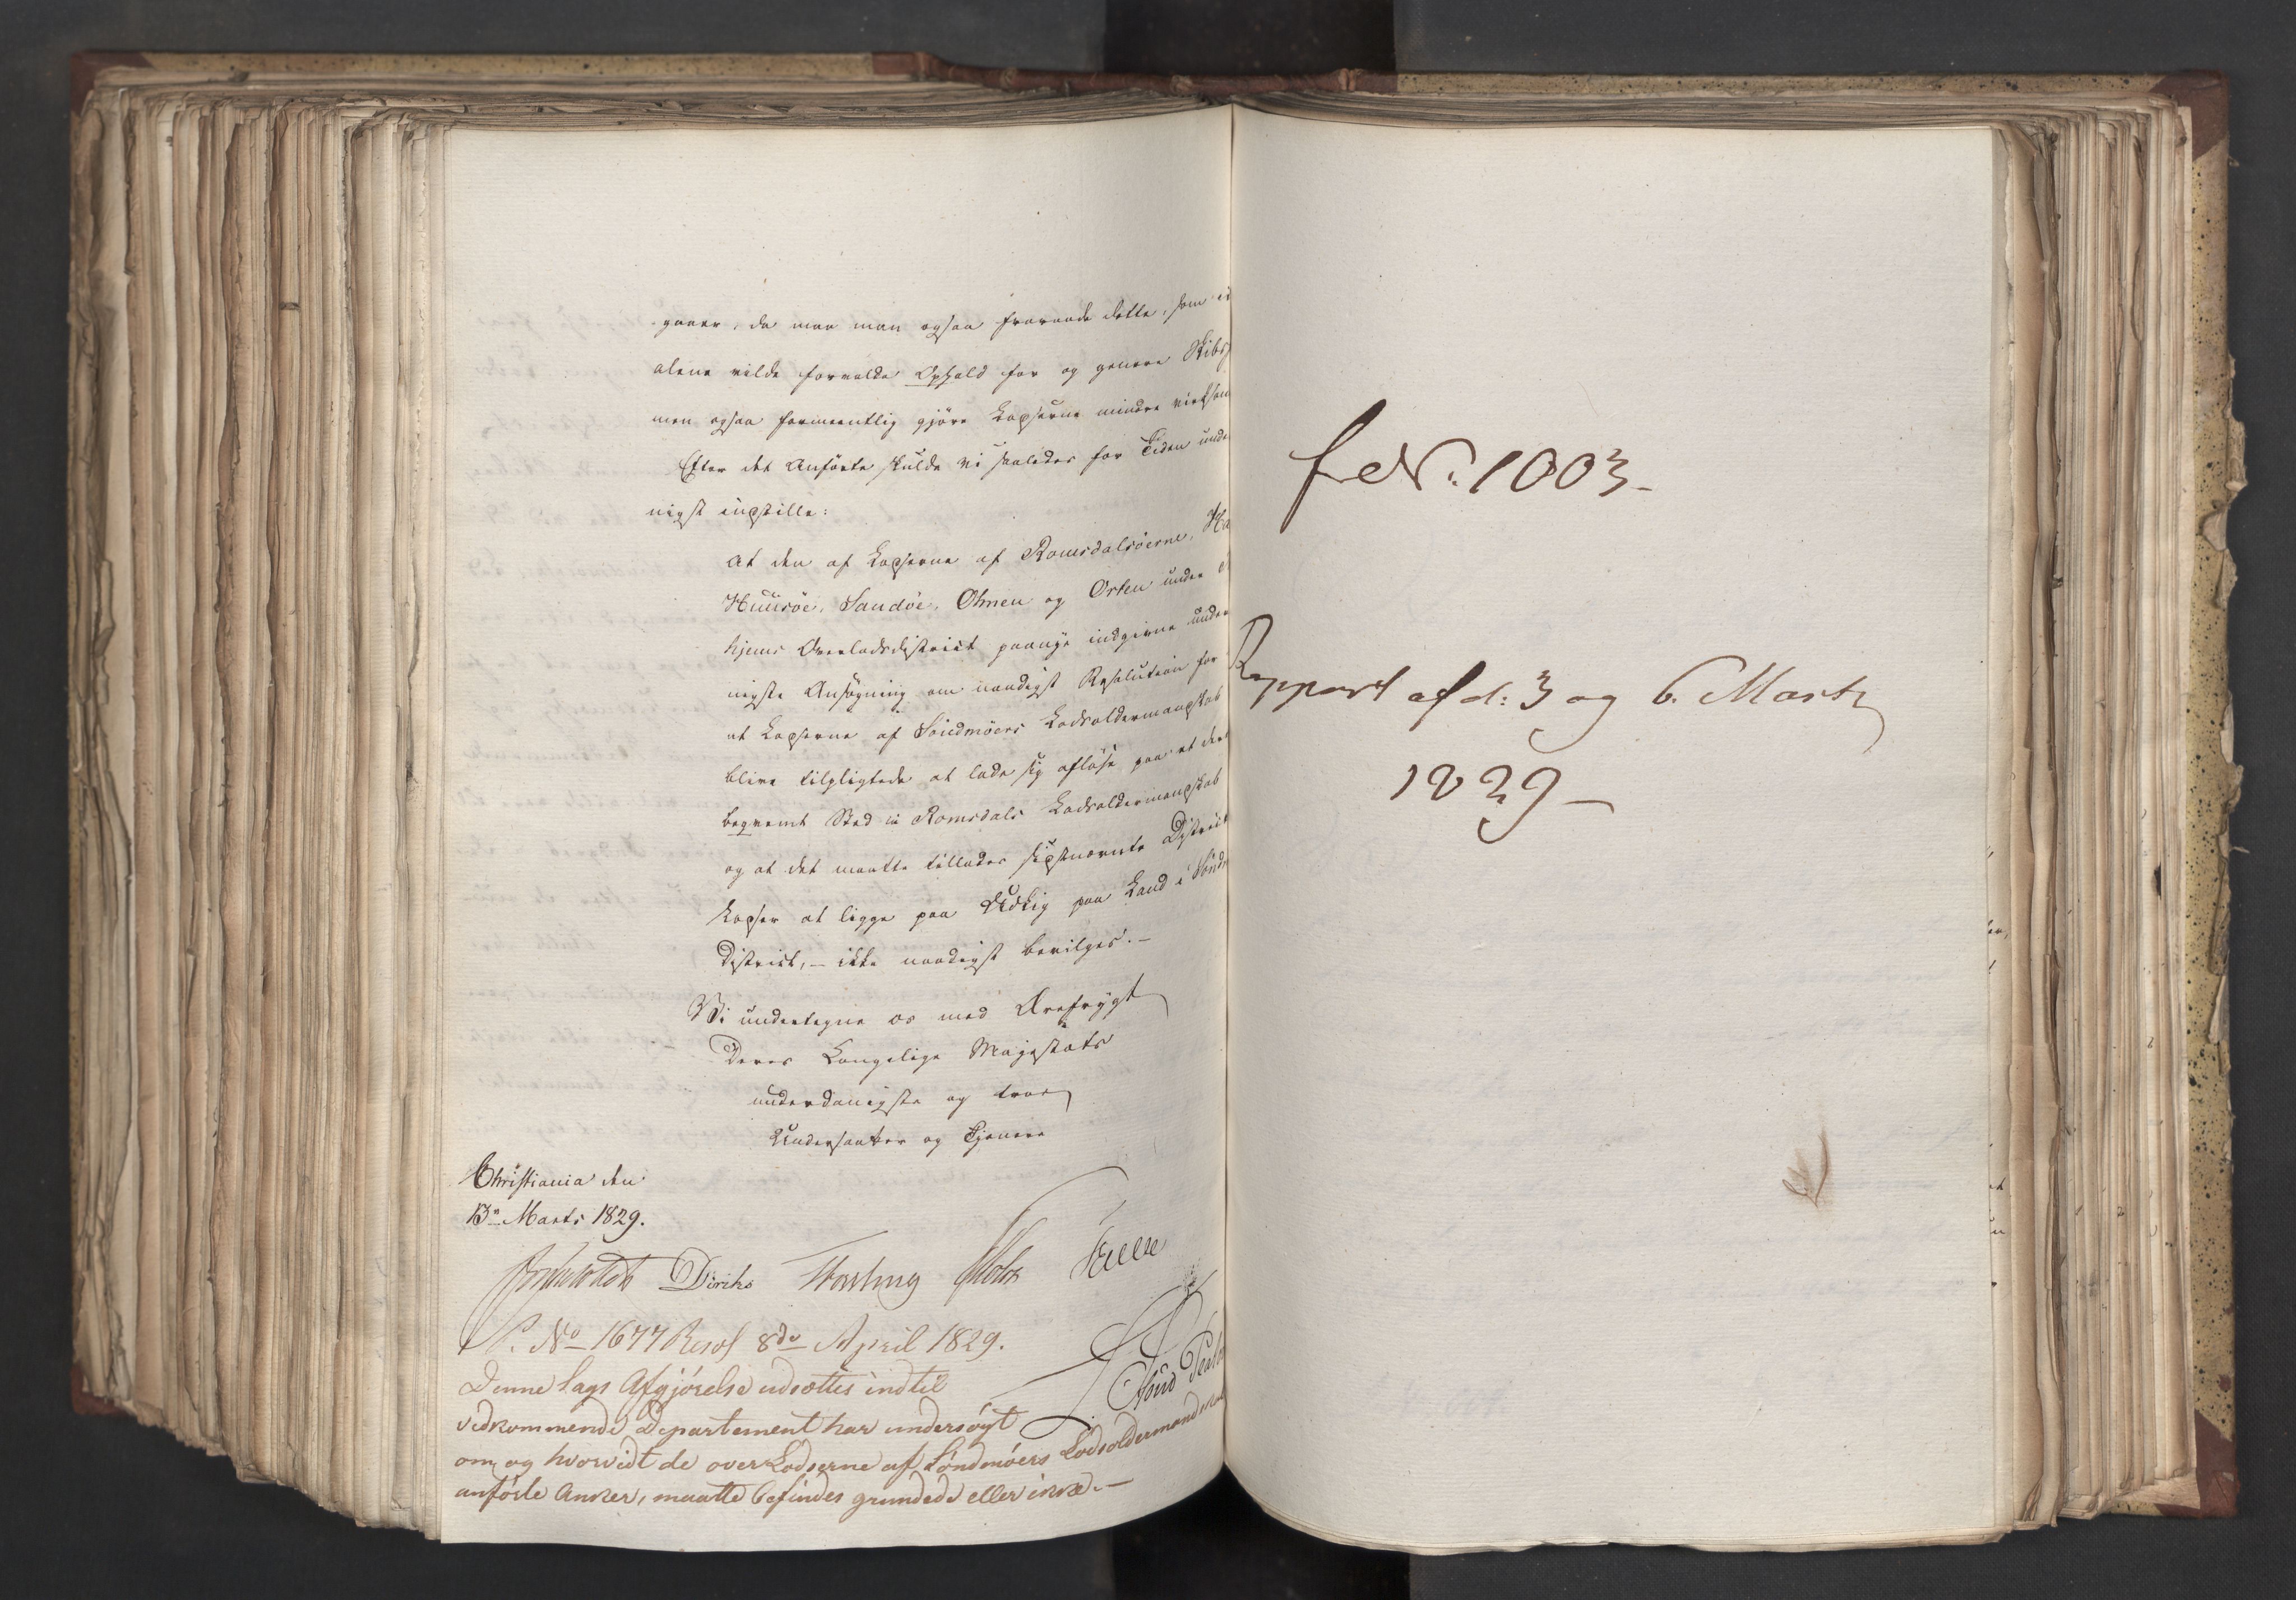 gaaer, da maa man ogsaa fraraade dette, som ei
alene vilde forvolde Ophold for og genere Skibs
men ogsaa formeentlig gjøre Lodserne mindre virksom
Efter det Anførte skulde vi saaledes for Tiden unde
nigst indstille:
At den af Lodserne af Romsdalsøerne, Ha
Huusøe, Sandøe, Ohnen og Orten under
hjems Overlodsdistrict paanye indgivne under
nigste Ansøgning om naadigst Resolution for
at Lodserne af Søndmøers Lodsoldermandskab
blive tilpligtede at lade sig afløse paa et der
beqvemt Sted in Romsdals Lodsoldermandskab
og at det maatte tillades sidstnævnte Districts
Lodser at ligge paa Udkig paa Land i Søndm
District, – ikke naadigst bevilges. –
Vi undertegne os med Ærefrygt
Deres Kongelige Majestæts
underdanigste og troe
Undersaatter og Tjenere
Christiania den
13de Marts 1829.
Diriks Fasting Holst
P. No 1677 Resol 8de April 1829.
Denne Sags Afgjørelse udsættes indtil
vedkommende Departement har undersøgt
om og hvorvidt de over Lodserne af Søndmøers Lodsoldermandskab
anførte Anker, maatte befindes grundede eller ikke. –
No. 1003 –
Rapport af d: 3 og 6. Marts
1829 –